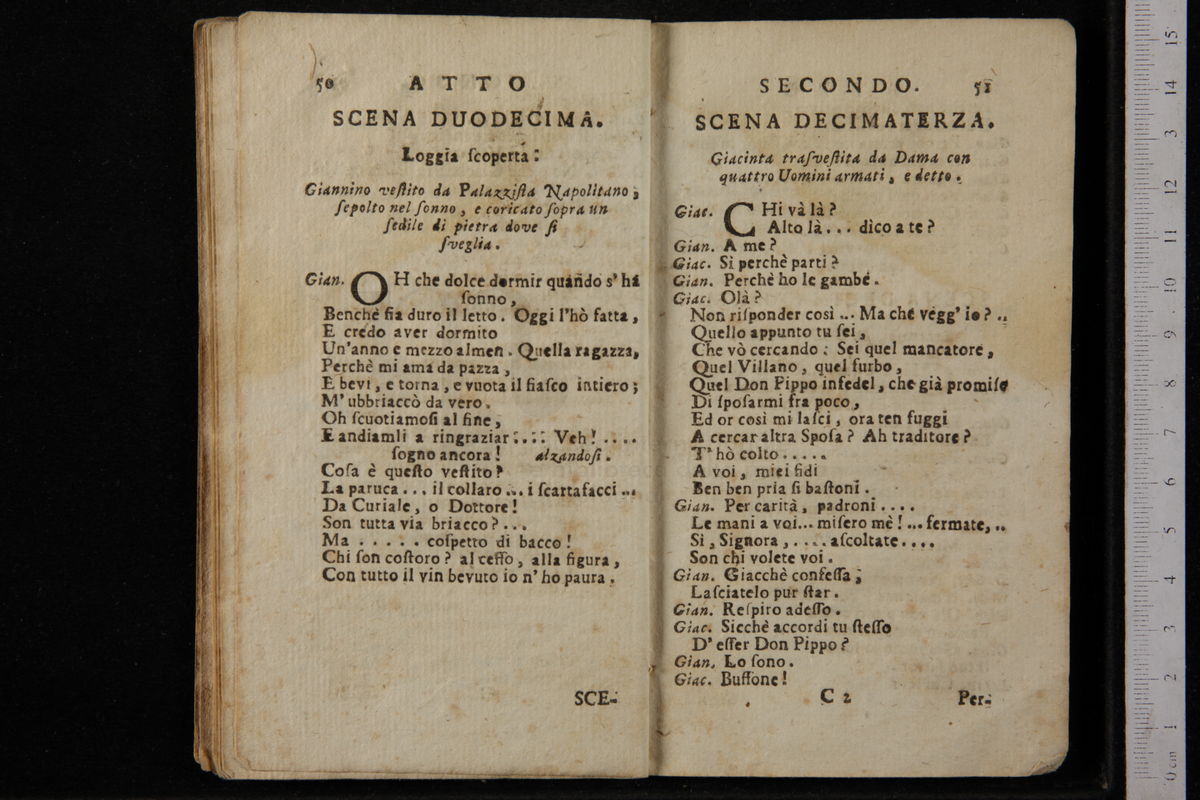 50 ATTO
SCENA DUODECIMA.
Loggia ſcoperta:
Giannino veſtito da Palazziſta Napolitano,
ſepolto nel ſonno, e coricato ſopra un
ſedile di pietra dove ſi
ſveglia.
Gian. OH che dolce dormir quando s' há
ſonno,
Benchè ſia duro il letto. Oggi l'hò fatta,
E credo aver dormito
Un'anno e mezzo almen. Quella ragazza,
Perchè mi ama da pazza,
E bevi, e torna, e vuota il fiaſco intiero;
M' ubbriaccò da vero.
Oh ſcuotiamoſi al fine,
E andiamli a ringraziar..... Veh!....
ſogno ancora! alzandoſi.
Coſa è queſto veſtito?
La paruca... il collaro... i ſcartafacci...
Da Curiale, o Dottore!
Son tutta via briacco?...
Ma..... coſpetto di bacco!
Chi ſon coſtoro? al ceffo, alla figura,
Con tutto il vin bevuto io n' ho paura.
SCE-
SECONDO. 51
SCENA DECIMATERZA.
Giacinta traſveſtita da Dama con
quattro Uomini armati, e detto.
Giac. CHi và là?
Alto là... dico a te?
Gian. A me?
Giac. Sì perchè parti?
Gian. Perchè ho le gambe.
Giac. Olà?
Non riſponder così... Ma che vegg' io?..
Quello appunto tu ſei,
Che vò cercando: Sei quel mancatore,
Quel Villano, quel furbo,
Quel Don Pippo infedel, che già promiſe
Di ſpoſarmi fra poco,
Ed or così mi laſci, ora ten fuggi
A cercar altra Spoſa? Ah traditore?
T' hò colto.....
A voi, miei fidi
Ben ben pria ſi baſtoni.
Gian. Per carità, padroni....
Le mani a voi... miſero mè!... fermate,..
Sì, Signora,.... aſcoltate....
Son chi volete voi.
Gian. Giacchè confeſſa,
Laſciatelo pur ſtar.
Gian. Reſpiro adeſſo.
Giac. Sicchè accordi tu ſteſſo
D' eſſer Don Pippo?
Gian. Lo ſono.
Giac. Buffone!
C 2 Per-
15
14
13
12
11
10
9
8
7
6
5
4
3
2
1
0 cm